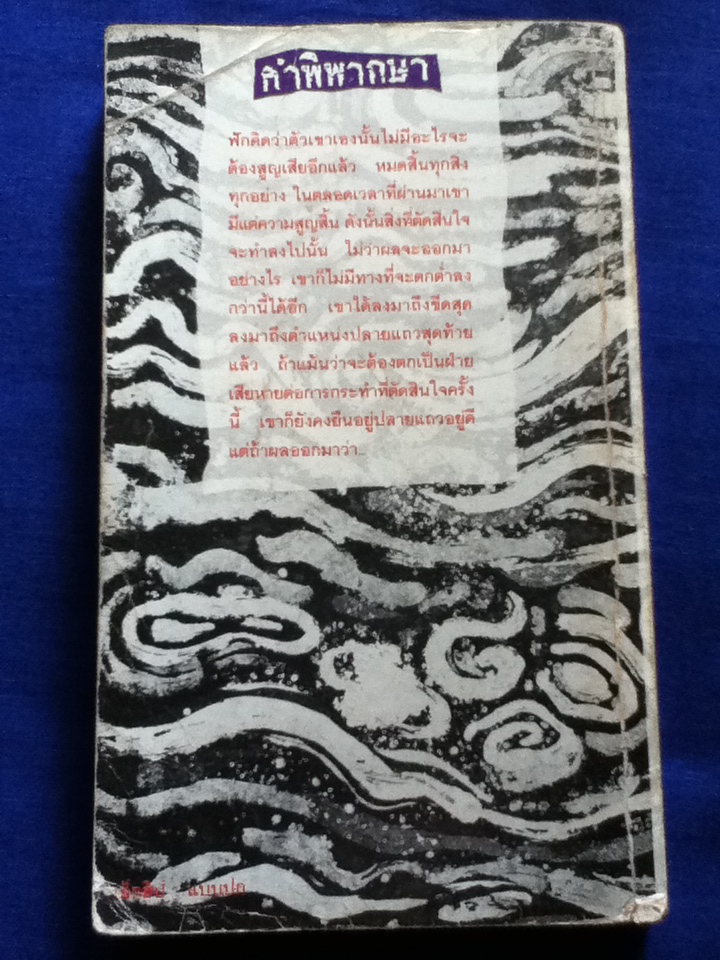 คำพิพากษา
ฟักคิดว่าตัวเขาเองนั้นไม่มีอะไรจะ
ต้องสูญเสียอีกแล้ว หมดสิ้นทุกสิ่ง
ทุกอย่าง ในตลอดเวลาที่ผ่านมาเขา
มีแต่ความสูญสิ้น ดังนั้นสิ่งที่ตัดสินใจ
จะทำลงไปนั้น ไม่ว่าผลจะออกมา
อย่างไร เขาก็ไม่มีทางที่จะตกต่ำลง
กว่านี้ได้อีก เขาได้ลงมาถึงขีดสุด
ลงมาถึงตำแหน่งปลายแถวสุดท้าย
แล้ว ถ้าแม้นว่าจะต้องตกเป็นฝ่าย
เสียหายต่อการกระทำที่ตัดสินใจครั้ง
นี้ เขาก็ยังคงยืนอยู่ปลายแถวอยู่ดี
แต่ถ้าผลออกมาว่า...
แบบปก